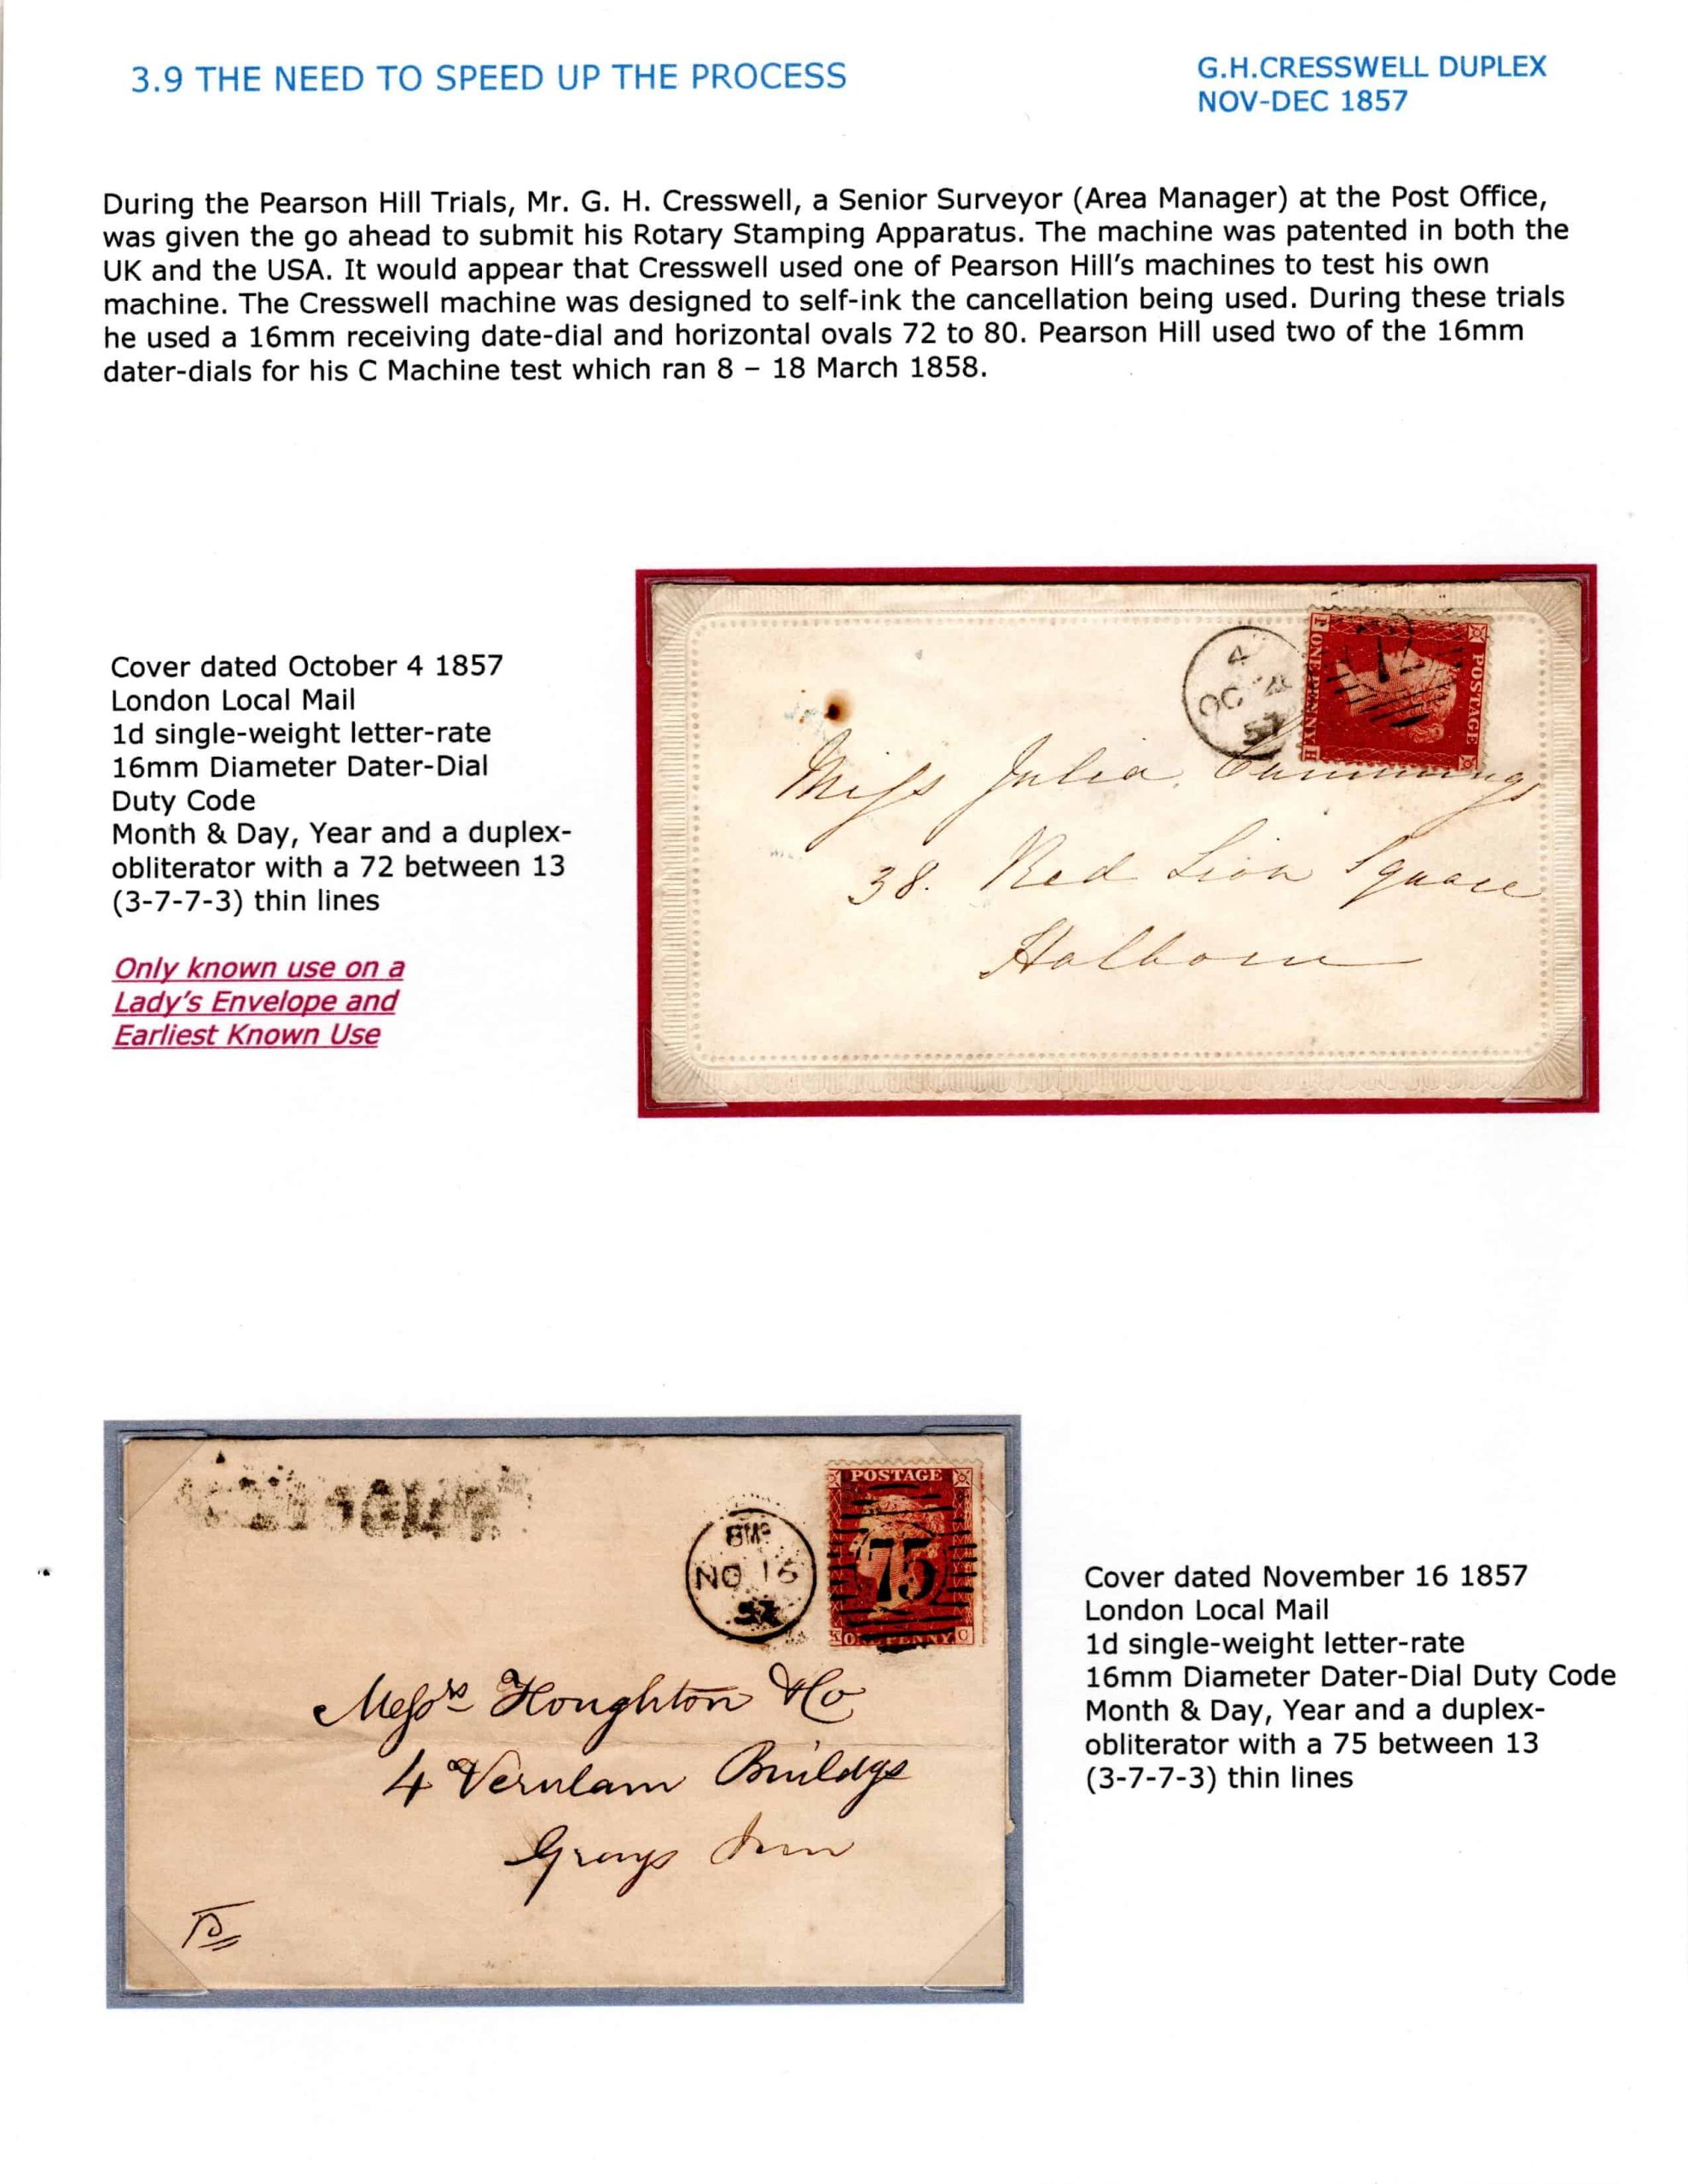 3.9 THE NEED TO SPEED UP THE PROCESS
G.H.CRESSWELL DUPLEX
NOV-DEC 1857
During the Pearson Hill Trials, Mr. G. H. Cresswell, a Senior Surveyor (Area Manager) at the Post Office,
was given the go ahead to submit his Rotary Stamping Apparatus. The machine was patented in both the
UK and the USA. It would appear that Cresswell used one of Pearson Hill's machines to test his own
machine. The Cresswell machine was designed to self-ink the cancellation being used. During these trials
he used a 16mm receiving date-dial and horizontal ovals 72 to 80. Pearson Hill used two of the 16mm
dater-dials for his C Machine test which ran 8 – 18 March 1858.
Cover dated October 4 1857
London Local Mail
1d single-weight letter-rate
16mm Diameter Dater-Dial
Duty Code
Month & Day, Year and a duplex-
obliterator with a 72 between 13
(3-7-7-3) thin lines
Only known use on a
Lady's Envelope and
Earliest Known Use
4
OC
57
72
POSTAGE
ONE PENNY
Miss Julia Cummings
38. Red Lion Square
Holborn
NO 16
57
POSTAGE
75
ONE PENNY
C
Messrs Houghton & Co
4 Verulam Buildgs
Grays Inn
Cover dated November 16 1857
London Local Mail
1d single-weight letter-rate
16mm Diameter Dater-Dial Duty Code
Month & Day, Year and a duplex-
obliterator with a 75 between 13
(3-7-7-3) thin lines